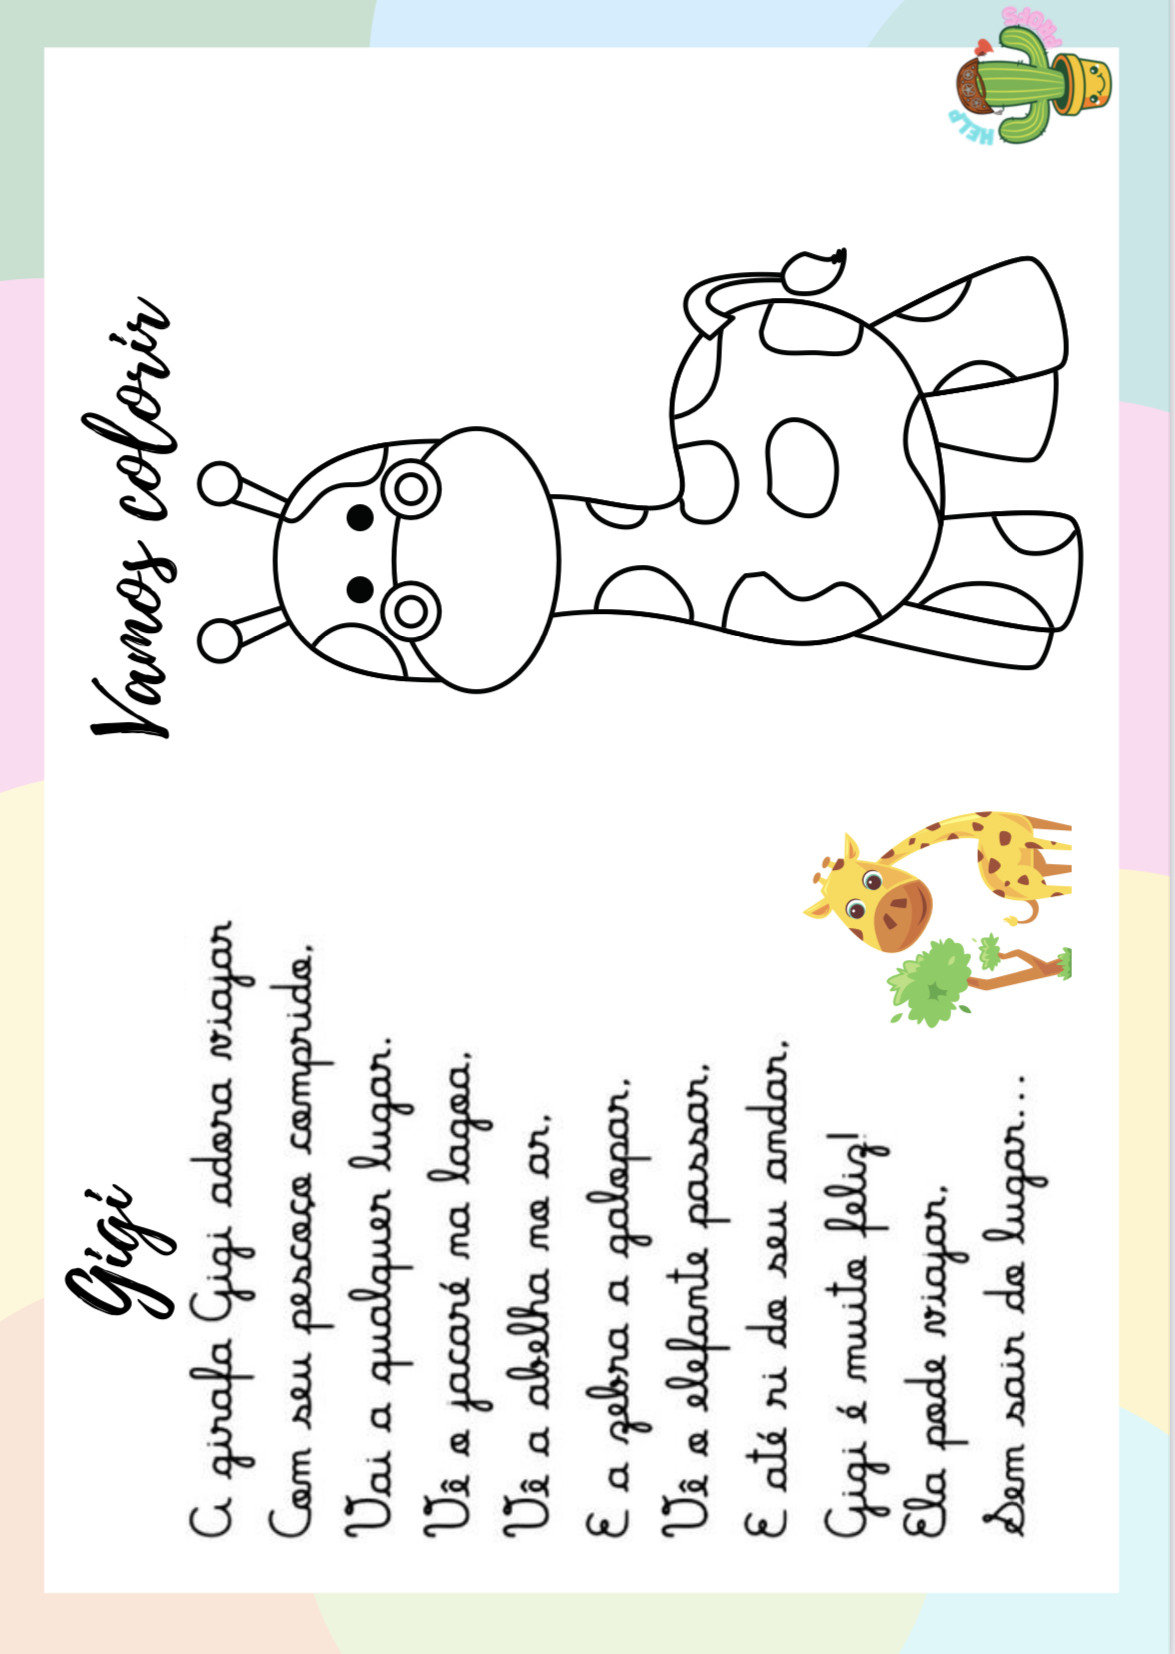 Gigi
A girafa Gigi adora viajar
Com seu pescoço comprido,
Vai a qualquer lugar.
Vê o jacaré na lagoa,
Vê a abelha no ar,
E a zebra a galopar,
Vê o elefante passar,
E até ri do seu andar,
Gigi é muito feliz!
Ela pode viajar,
Sem sair do lugar...
Vamos colorir
HELP
PROFS